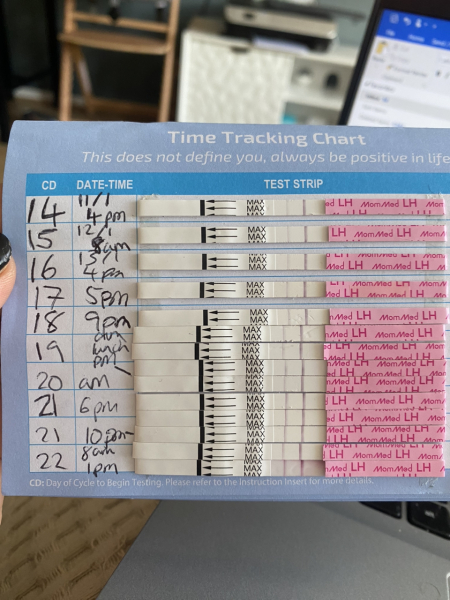 Time Tracking Chart
This does not define you, always be positive in life
CD DATE-TIME TEST STRIP
14 11/1 4pm MAX MAX LH MomMed LH
15 12/1 8am MAX MAX MomMed LH MomMed
16 13/1 4pm MAX MAX LH MomMed LH
17 5pm MAX MAX LH MomMed LH
18 9pm MAX MAX Med LH MomMed LH
19 lunch pm MAX MAX MomMed LH
20 am MAX MAX MomMed LH
21 6pm MAX MAX MomMed LH
21 10pm MAX MAX Med LH MomMed LH
22 8am 1pm MAX MAX Med LH MomMed LH
CD: Day of Cycle to Begin Testing. Please refer to the Instruction Insert for more details.